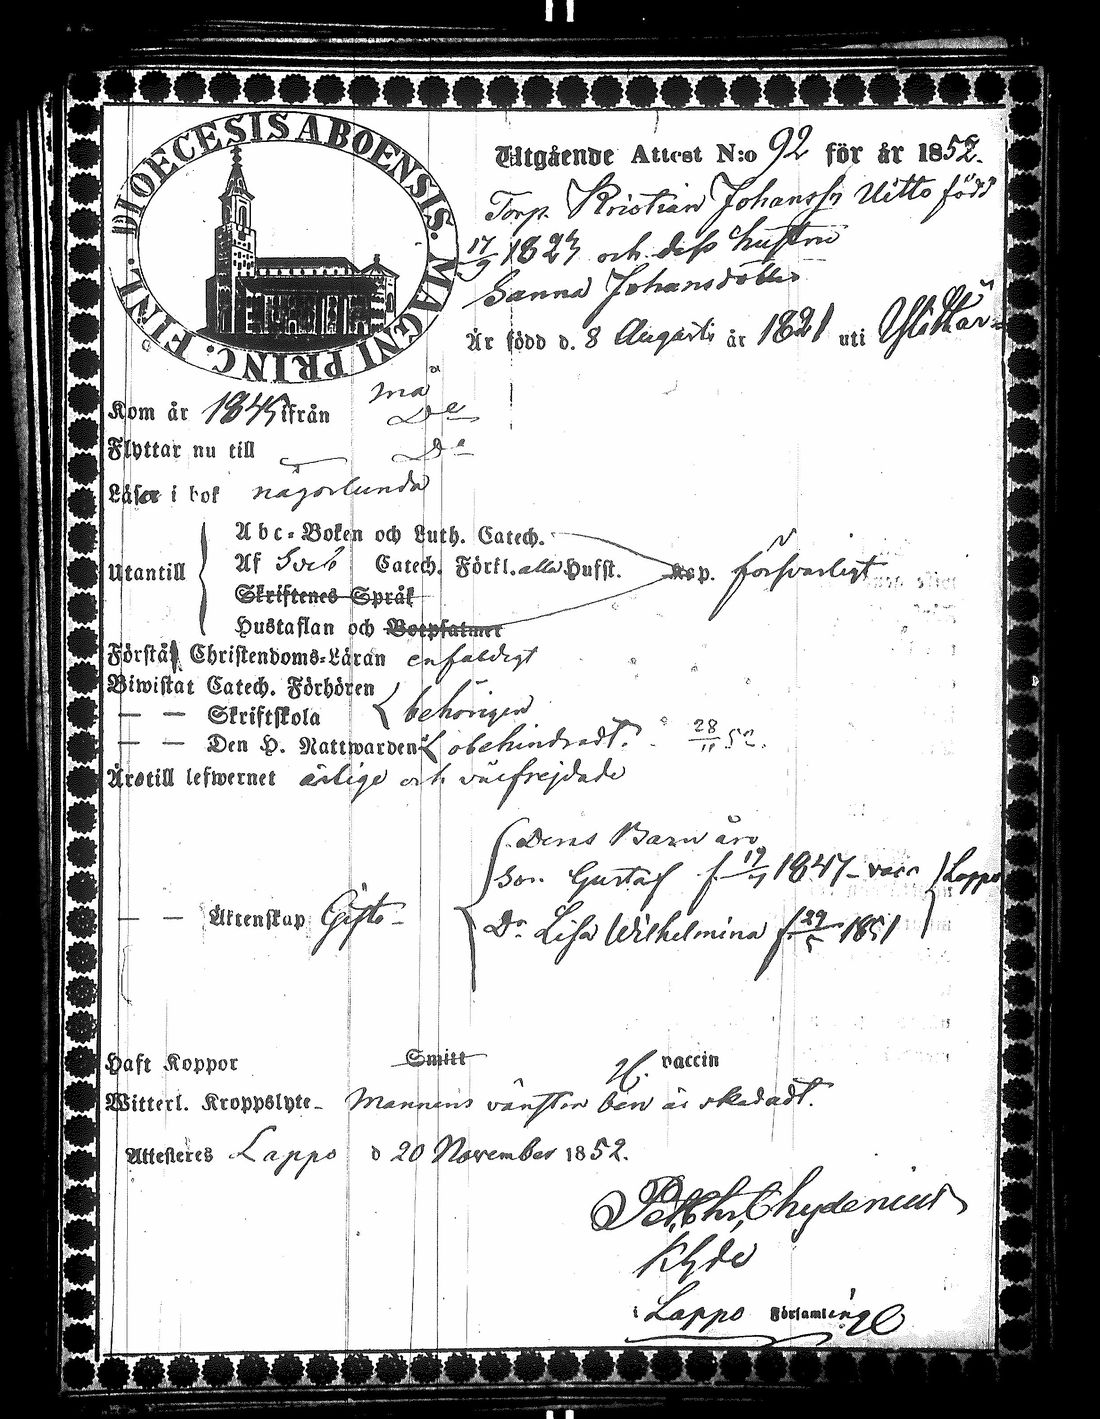 DIOECESIS ABOENSIS. MAGNI PRINC. FINL.
Utgående Attest N:o 92 för år 1852.
Torp. Kristian Johanss: Uitto född
17/9 1823 och dess hustru
Sanna Johansdotter
Är född d. 8 Augusti år 1821 uti
Kom år 1845 ifrån Do
Flyttar nu till Do
Läser i bok någorlunda
Utantill
Abc-Boken och Luth. Catech.
Af Sveb Catech. Förkl. alla Hufst.
kap. försvarligt
Skriftenes Språk
Hustaflan och Botpsalmer
Förstår Christendoms-Läran enfaldigt
Biwistat Catech. Förhören
— — Skriftskola behörigen
— — Den H. Nattwarden obehindradt. 28/11 52.
Äro till lefwernet ärlige och välfrejdade
Deras Barn äro
Son Gustaf f. 19/7 1847 - vacc Lappo
— — Äktenskap Gifte -
Dr Lisa Wilhelmina f. 29/5 1851
Haft Koppor Smitt H. vaccin
Witterl. Kroppslyte - Mannens vänstra ben är skadadt.
Attesteras Lappo d 20 November 1852.
Chydenius
Khde
i Lappo Församling